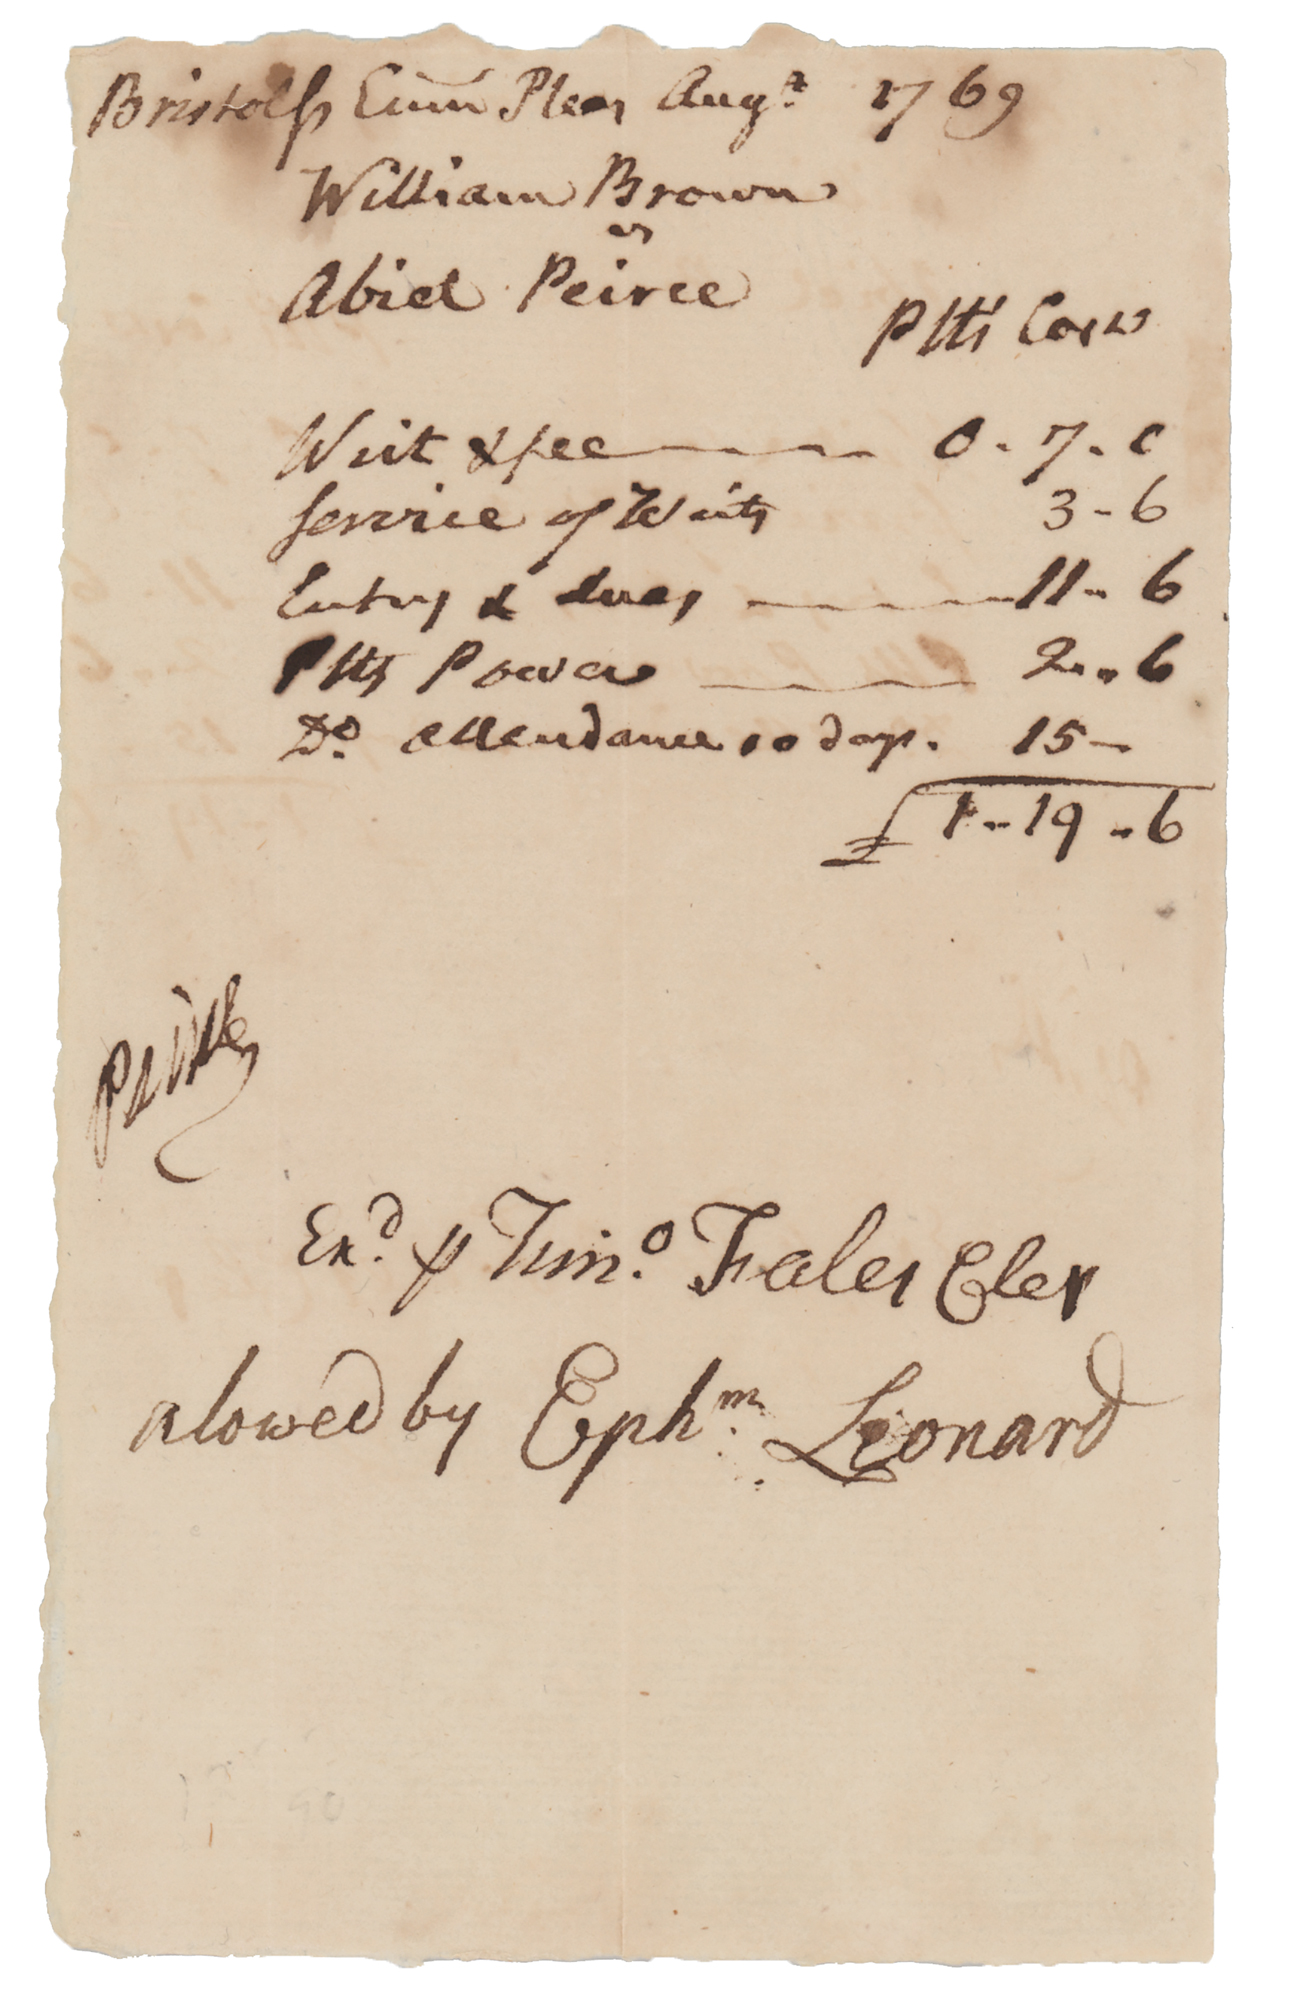 Bristol ss Com̄ Pleas Augt 1769
William Brown
vs
Abiel Peirce
Pltfs Costs
Writ & fee 0-7-0
Service of Writ 3-6
Entry & dues 11-6
Pltfs Power 2-6
Do. attendance 10 days. 15-
£1-19-6
Exd. ⅌ Timo. Fales Cler
alowed by Ephm. Leonard